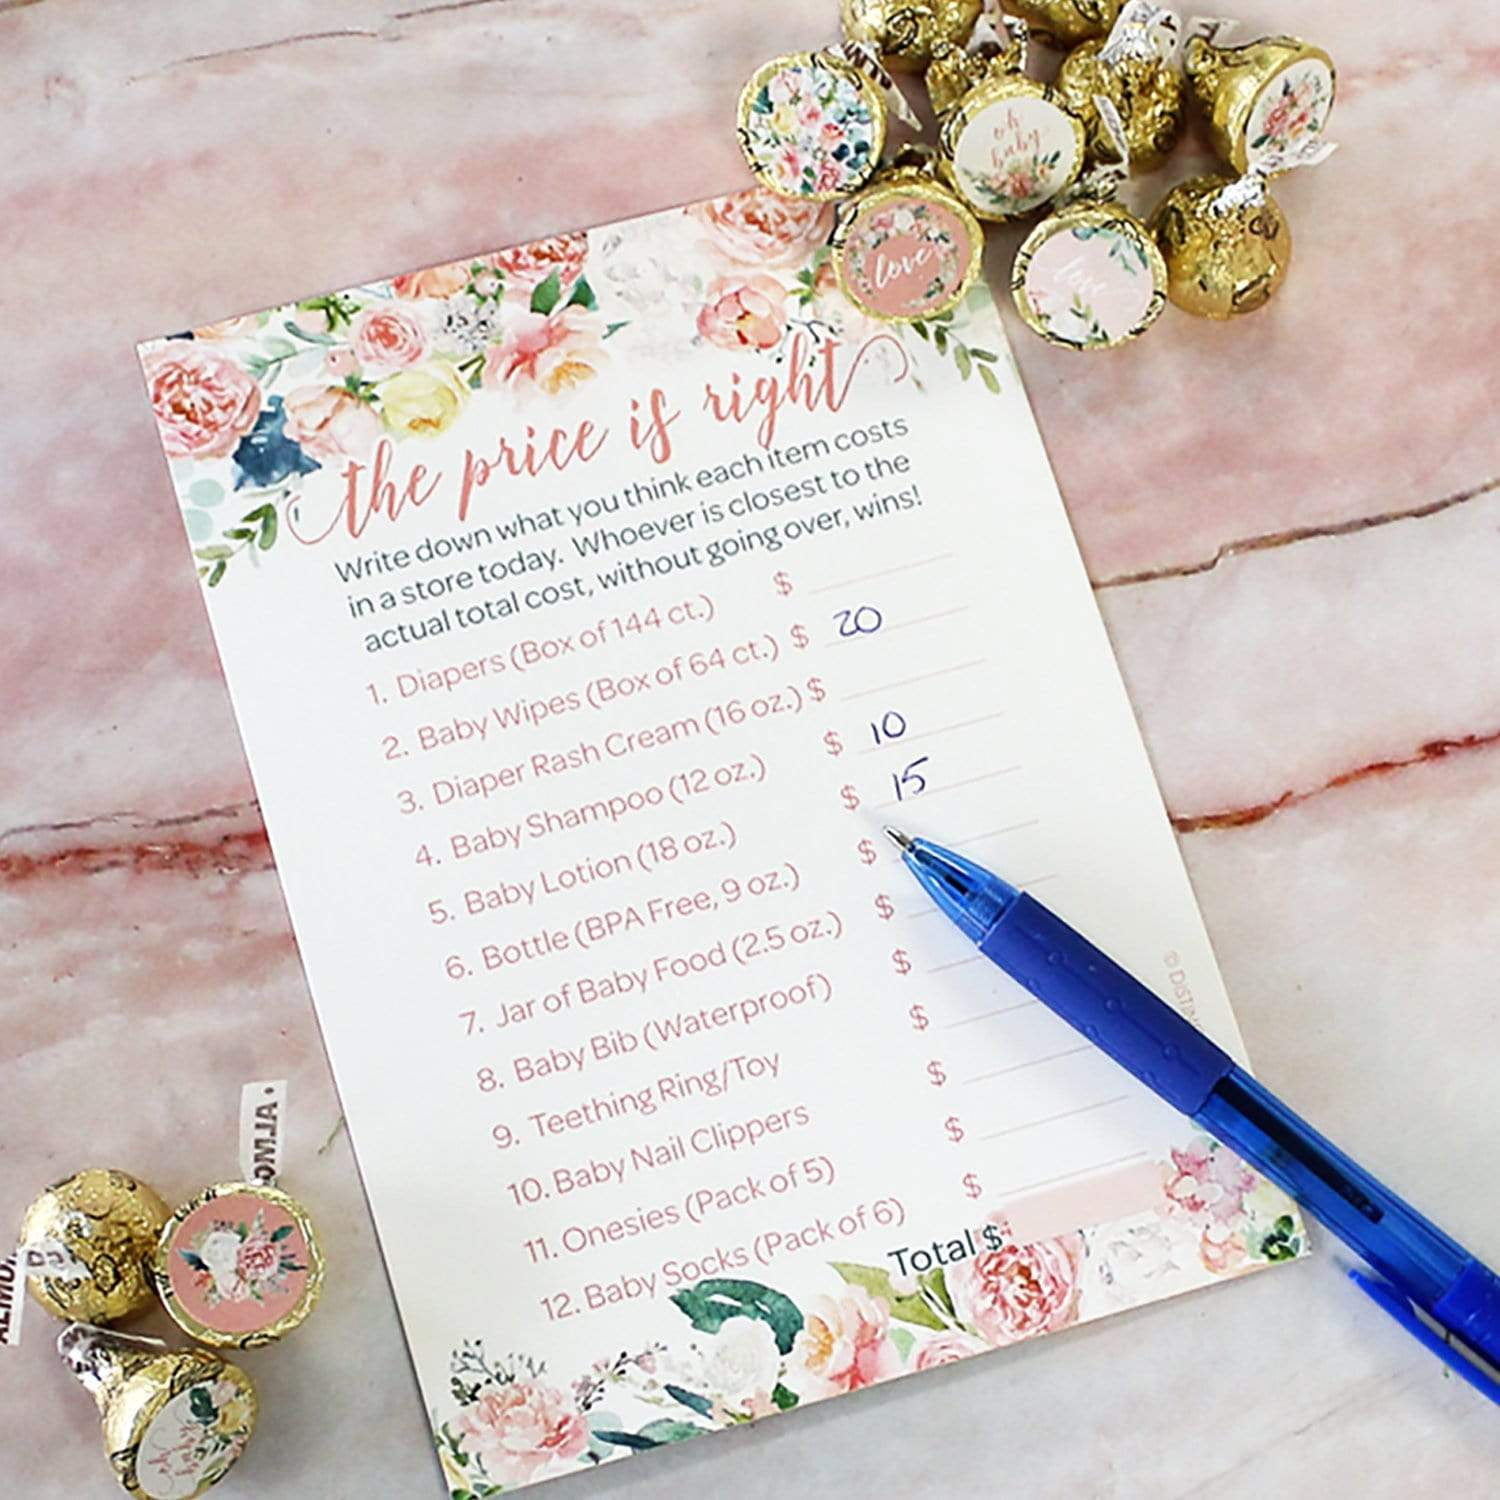 oh
baby
love
love
the price is right
Write down what you think each item costs
in a store today. Whoever is closest to the
actual total cost, without going over, wins!
1. Diapers (Box of 144 ct.) $
2. Baby Wipes (Box of 64 ct.) $ 20
3. Diaper Rash Cream (16 oz.) $
4. Baby Shampoo (12 oz.) $ 10
5. Baby Lotion (18 oz.) $ 15
6. Bottle (BPA Free, 9 oz.) $
7. Jar of Baby Food (2.5 oz.) $
8. Baby Bib (Waterproof) $
9. Teething Ring/Toy $
10. Baby Nail Clippers $
11. Onesies (Pack of 5) $
12. Baby Socks (Pack of 6) $
Total $
oh
baby